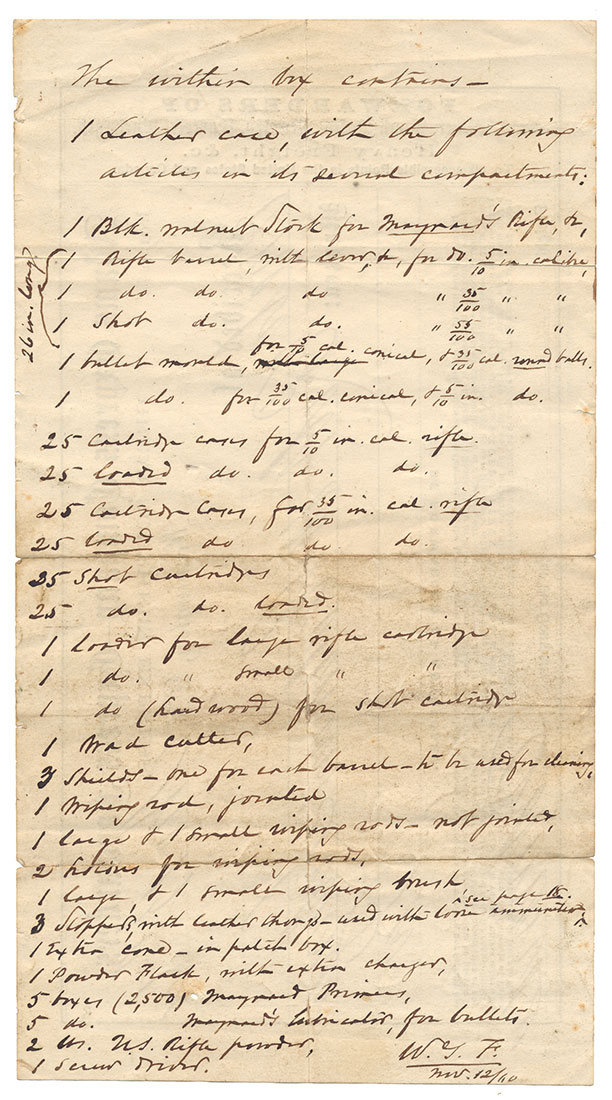 The within box contains—
1 Leather case, with the following
articles in its several compartments:
1 Blk. walnut Stock for Maynard's Rifle, &c,
26 in. long.
1 Rifle barrel, with lever, &c, for do. 5/10 in. calibre,
1 do. do. do " 35/100 " "
1 Shot do. do. " 55/100 " "
1 bullet mould, for 5/10 cal. conical, & 35/100 cal. round balls.
1 do. for 35/100 cal. conical, & 5/10 in. do.
25 Cartridge cases for 5/10 in. cal. rifle.
25 loaded do. do. do.
25 Cartridge Cases, for 35/100 in. cal. rifle
25 loaded do do. do.
25 Shot Cartridges
25 do. do. loaded.
1 loader for large rifle cartridge
1 do. " small " "
1 do (hardwood) for shot cartridge
1 Wad cutter,
3 Shields — one for each barrel — to be used for cleaning,
1 Wiping rod, jointed
1 large & 1 small wiping rods — not jointed,
2 holders for wiping rods,
1 large, & 1 small wiping brush,
see page 15.
3 Stoppers, with leather thongs — used with loose ammunition,
1 Extra cone — in patch box.
1 Powder Flask, with extra charger,
5 boxes (2,500) Maynard Primers,
5 do. Maynard's lubricator, for bullets.
2 lbs. U.S. Rifle powder,
1 Screw driver.
W. G. F.
Nov. 12/60